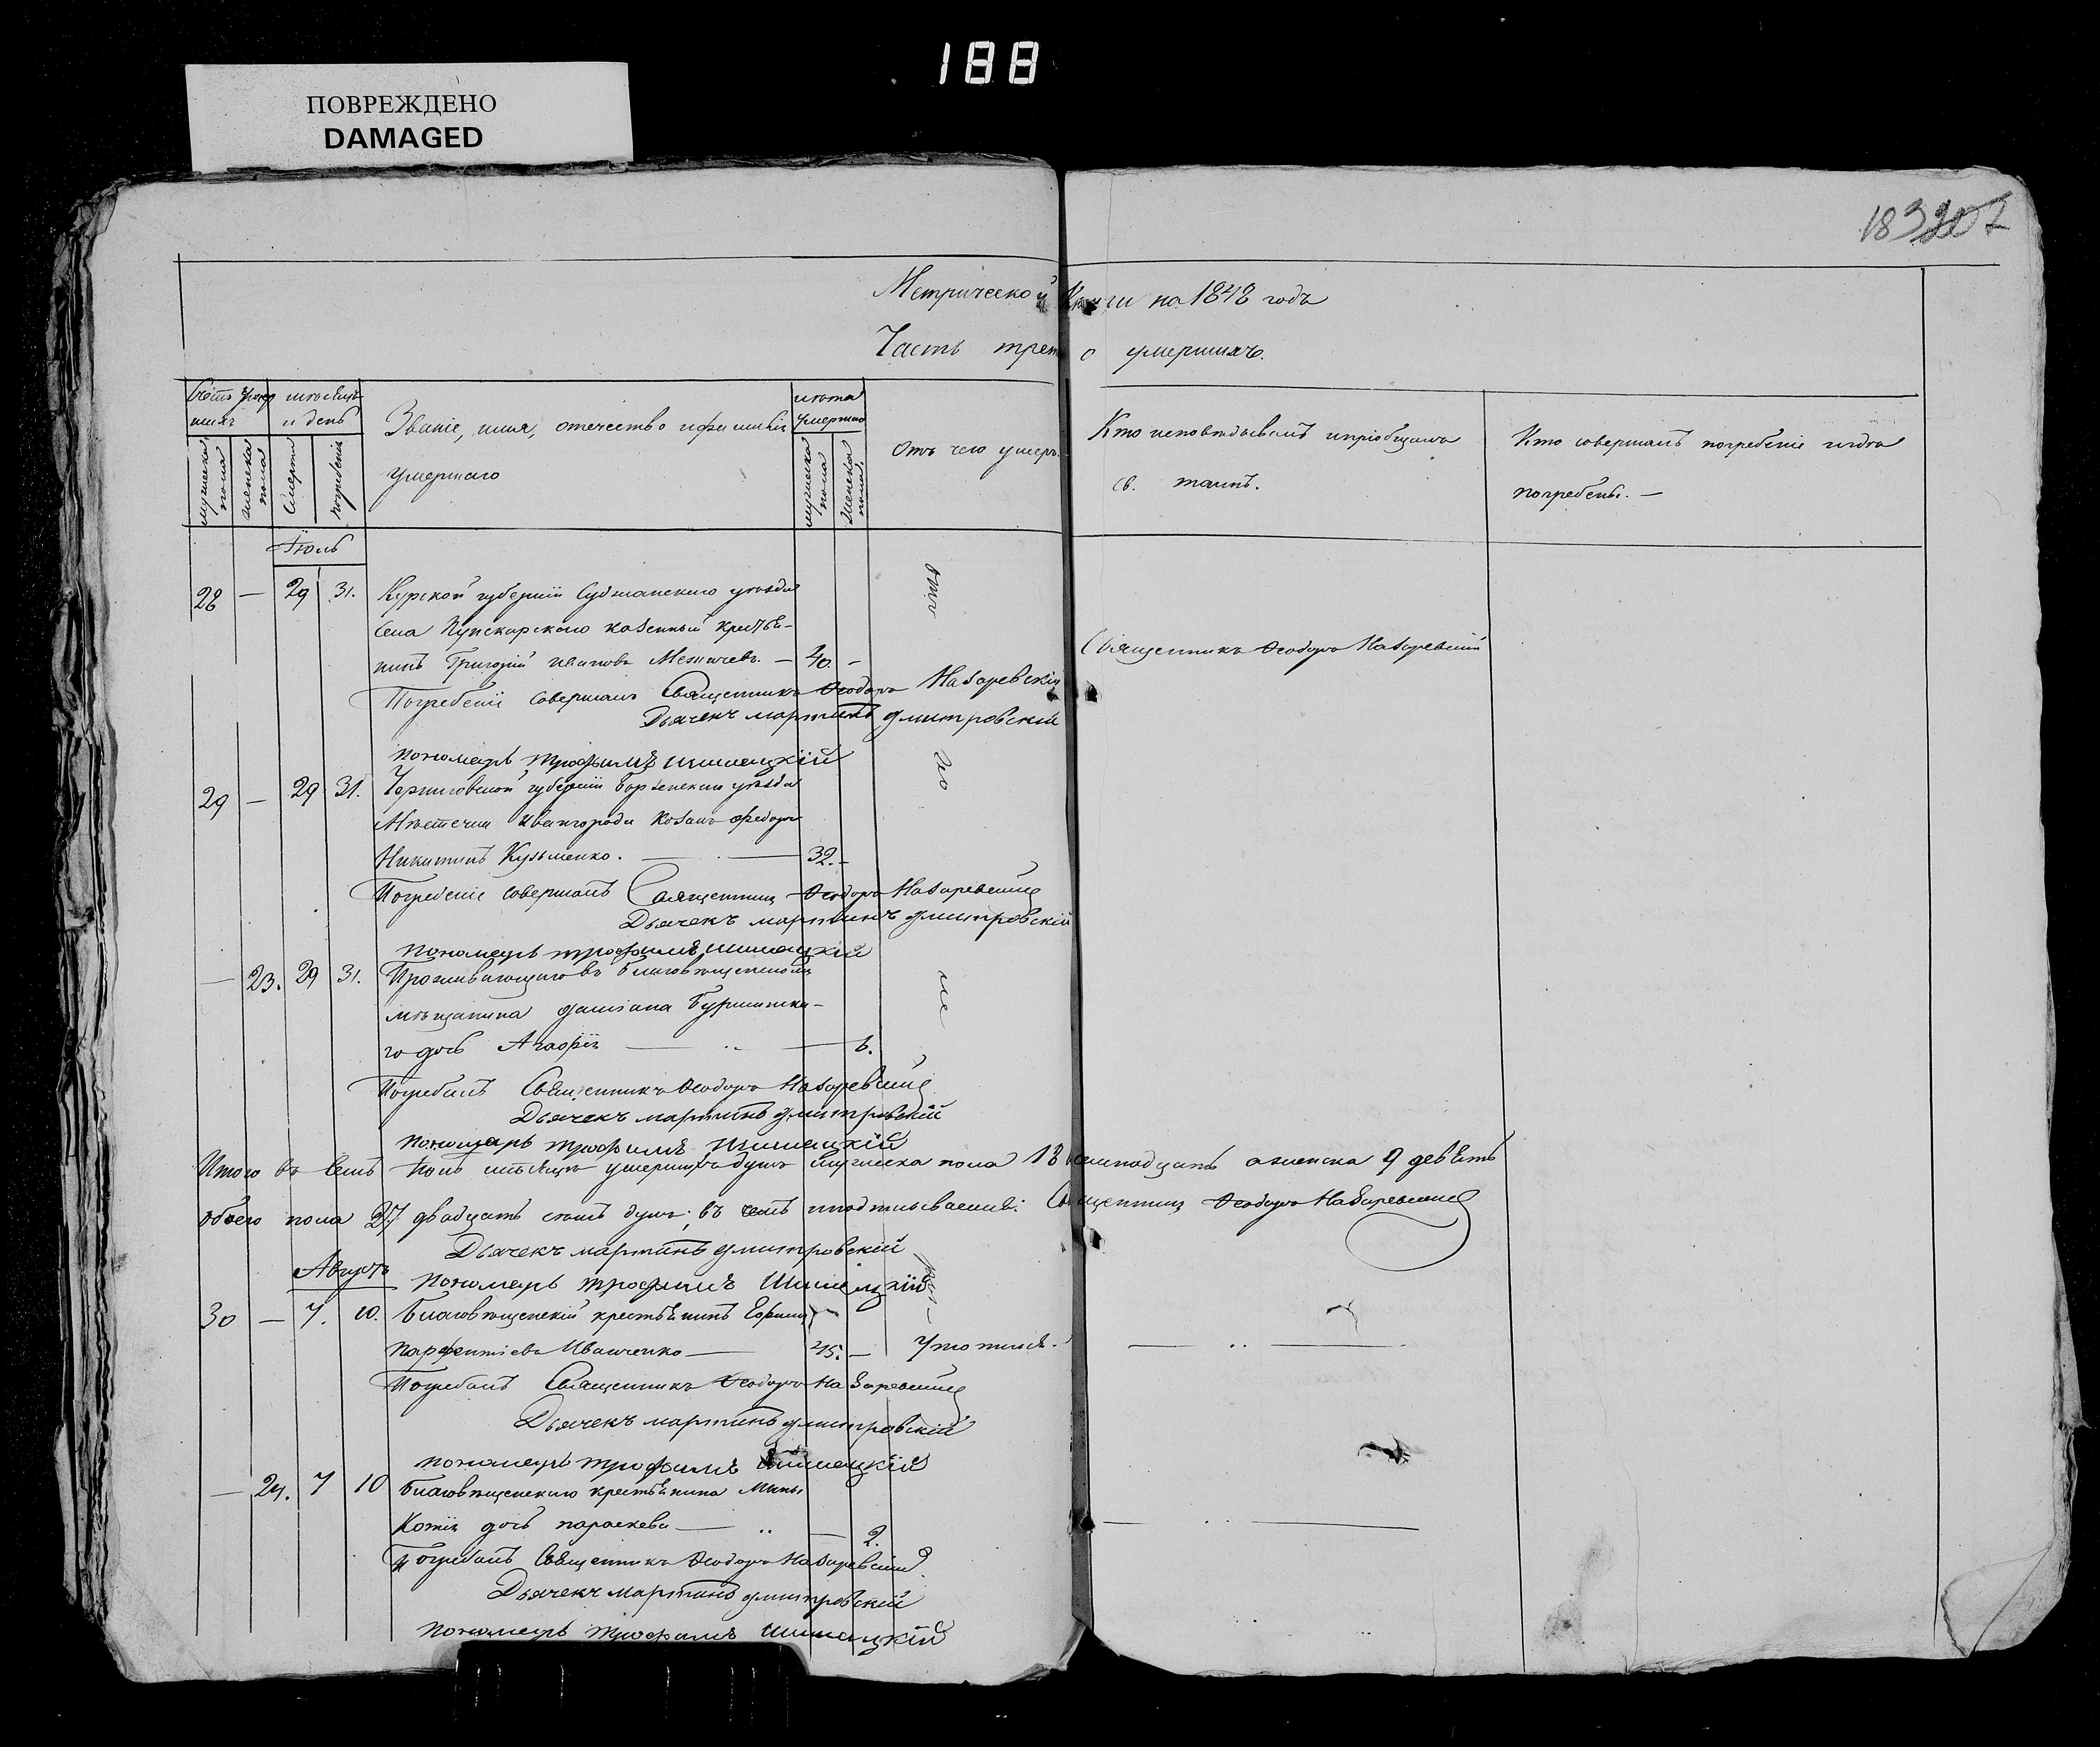 188
ПОВРЕЖДЕНО
DAMAGED
183 207
Метрической Книги на 1848 годъ
Часть трет о умершихъ.
Счетъ умер
шихъ
мужеска пола
женска пола
мѣсяцъ
и день
Смерти
погребенія
Званіе, имя, отечество и фамилія
умершаго
лѣта
умершаго
мужеска пола
женска пола.
Отъ чего умеръ.
Кто исповѣдывалъ и пріобщалъ
св. таинъ.
Кто совершалъ погребеніе и гдѣ
погребены. —
Іюль
28 — 29 31. Курской губерніи Суджанскаго уѣзда
Села Пушкарскаго казенный крестья-
нинъ Григорій Ивановъ — 40. —
Священникъ Ѳеодоръ Назаревскій
Погребеніе совершалъ Священникъ Ѳеодоръ Назаревскій
Дьячекъ мартинъ дмитровскій
пономарь трофимъ шишацкій
29 — 29 31. Черниговской губерніи Борзенскаго уѣзда
Мѣстечка Ивангорода Козакъ Федоръ
Никитинъ Кузьменко. — 32. —
Погребеніе совершалъ Священникъ Ѳеодоръ Назаревскій
Дьячекъ мартинъ дмитровскій
пономарь трофимъ шишацкій
— 23. 29 31. Проживающаго въ Благовѣщенскомъ
мѣщанина даміана
го дочь Агафія — 6.
Погребалъ Священникъ Ѳеодоръ Назаревскій
Дьячекъ мартинъ дмитровскій
пономарь трофимъ шишацкій
Итого въ семъ Іюль мѣсяцѣ умершихъ душъ мужеска пола 18 осьмнадцать а женска 9 девять
обоего пола 27 двадцать семь душъ; въ чемъ и подписываемся: Священникъ Ѳеодоръ Назаревскій
Дьячекъ мартинъ дмитровскій
Августъ
пономарь трофимъ шишацкій
30 — 7. 10. Благовѣщенскій крестьянинъ Ефимъ
Парфентіевъ Иванченко — 45. — Утопился.
Погребалъ Священникъ Ѳеодоръ Назаревскій
Дьячекъ мартинъ дмитровскій
пономарь трофимъ шишацкій
— 24. 7 10 Благовѣщенскаго крестьянина Мины
дочь параскева — 2.
Погребалъ Священникъ Ѳеодоръ Назаревскій
Дьячекъ мартинъ дмитровскій
пономарь трофимъ шишацкій